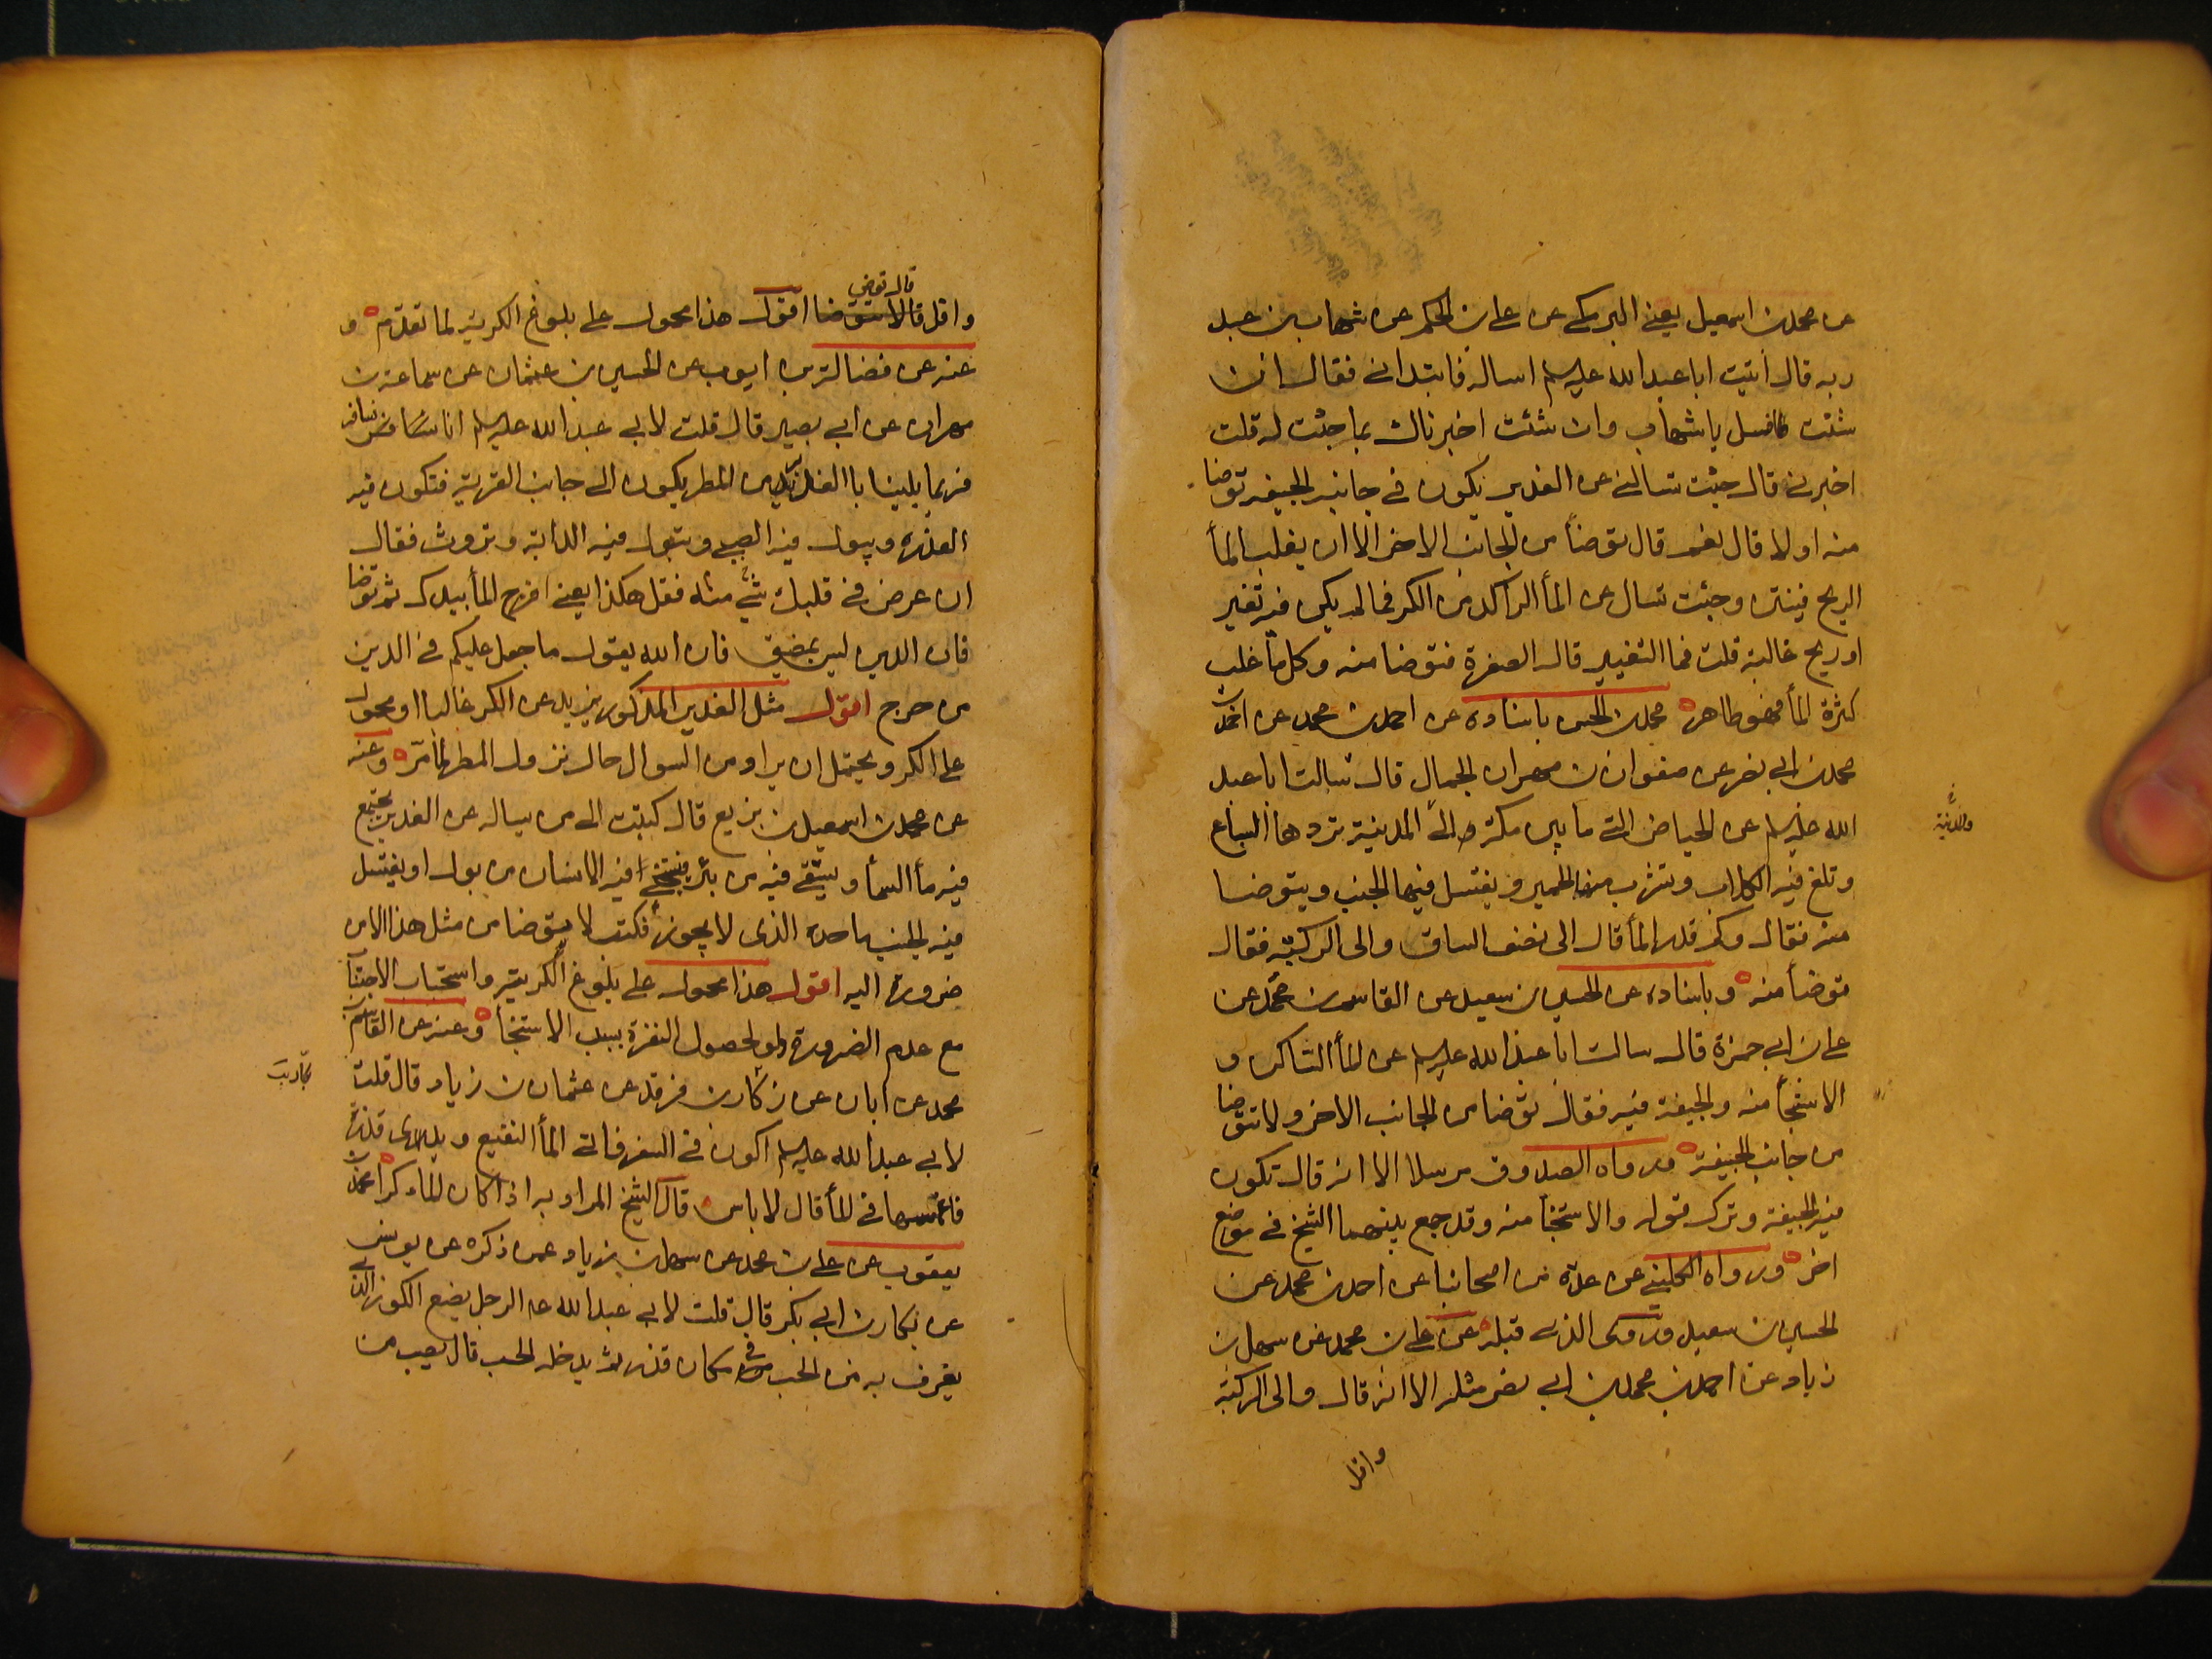 عن محمد بن اسمعيل يعنى البرمكى عن على بن الحكم عن شهاب بن عبد
ربه قال اتيت ابا عبد الله عليه السلم اساله فابتدانى فقال ان
شئت فاسل يا شهاب وان شئت اخبرناك بما جئت له قلت
اخبرنى قال جئت تسالنى عن الغدير يكون فى جانبه الجيفة توضا
منه او لا قال نعم قال توضأ من الجانب الاخر الا ان يغلب الماً
الريح فينتن وجئت تسال عن المأ الراكد من الكر فما لم يكن فيه تغير
او ريح غالبة قلت فما التغيير قال الصفرة فتوضا منه وكل ما غلب
كثرة المأ فهو طاهر محمد بن الحسن باسناده عن احمد بن محمد عن احمد بن
محمد بن ابى نصر عن صفوان بن مهران الجمال قال سالت ابا عبد
الله عليه السلم عن الحياض التى ما بين مكة والى المدينة تردها السباع
والمدينة
وتلغ فيه الكلاب وتشرب منها الحمير ويغتسل فيها الجنب ويتوضا
منه فقال وكم قدر المأ قال الى نصف الساق والى الركبة فقال
توضأ منه وباسناده عن الحسين بن سعيد عن القاسم بن محمد عن
على بن ابى حمزة قال سالت ابا عبد الله عليه السلم عن المأ الساكن و
الاستنجأ منه والجيفة فيه فقال توضا من الجانب الاخر ولا تتوضا
من جانب الجيفة ورواه الصدوق مرسلا الا انه قال تكون
فيه الجيفة وترك قوله والاستنجأ منه وقد جمع بينهما الشيخ فى موضع
اخر ورواه الكلينى عن عدة من اصحابنا عن احمد بن محمد عن
الحسين بن سعيد وروى الذى قبله عن على بن محمد عن سهل بن
زياد عن احمد بن محمد بن ابى نصر مثله الا انه قال والى الركبة
واقل
قال توضى
واقل قال توضا اقول هذا محمول على بلوغ الكرية لما تقدم و
عنه عن فضالة بن ايوب عن الحسين بن عثمان عن سماعة بن
مهران عن ابى بصير قال قلت لابى عبد الله عليه السلم انا نسافر
فربما بلينا بالغدير من المطر يكون الى جانب القرية فتكون فيه
العذرة ويبول فيه الصبى وتبول فيه الدابة وتروث فقال
ان عرض فى قلبك شئ منه فقل هكذا يعنى افرج المأ بيدك ثم توضا
فان الدين ليس بمضيق فان الله يقول ما جعل عليكم فى الدين
من حرج اقول مثل الغدير المذكور يزيد عن الكر غالبا او محمول
على الكر ويحتمل ان يراد من السوال حال نزول المطر لما مرّ وعنه
عن محمد بن اسمعيل بن بزيع قال كتبت الى من يساله عن الغدير يجتمع
فيه مأ السمأ ويستقى فيه من بئر فيستنجى فيه الانسان من بول او يغتسل
فيه الجنب ما حده الذى لا يجوز فكتب لا يتوضا من مثل هذا الا من
ضرورة اليه اقول هذا محمول على بلوغ الكرية واستحباب الاجتناب
مع عدم الضرورة ولو لحصول النفرة بسبب الاستنجأ وعنه عن القاسم بن
محمد عن ابان عن زكار بن فرقد عن عثمان بن زياد قال قلت
لابى عبد الله عليه السلم اكون فى السفر فاتى المأ النقيع ويدى قذرة
فاغمسها فى المأ قال لا باس قال الشيخ المراد به اذا كان المأ كرا محمد بن
يعقوب عن على بن محمد عن سهل بن زياد عمن ذكره عن يونس
عن بكار بن ابى بكر قال قلت لابى عبد الله ع الرجل يضع الكوز الذى
يغرف به من الحب فى مكان قذر ثم يدخله الحب قال يصب من